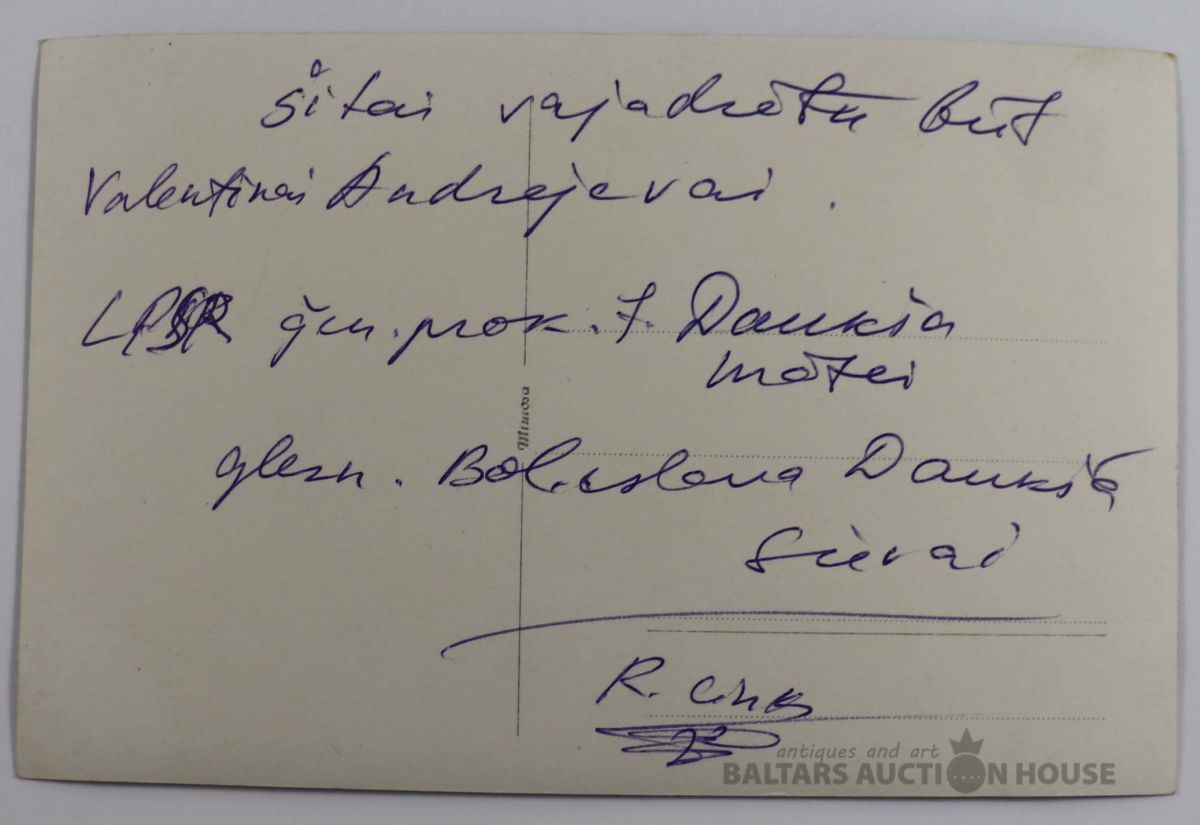 šitai vajadzētu būt
Valentīnai Andrejevai.
LPSR ģen. prok. J. Daukša
mātei
glezn. Boļeslava Daukša
sievai
Mimosa
R. Cink
antiques and art
BALTARS AUCTION HOUSE